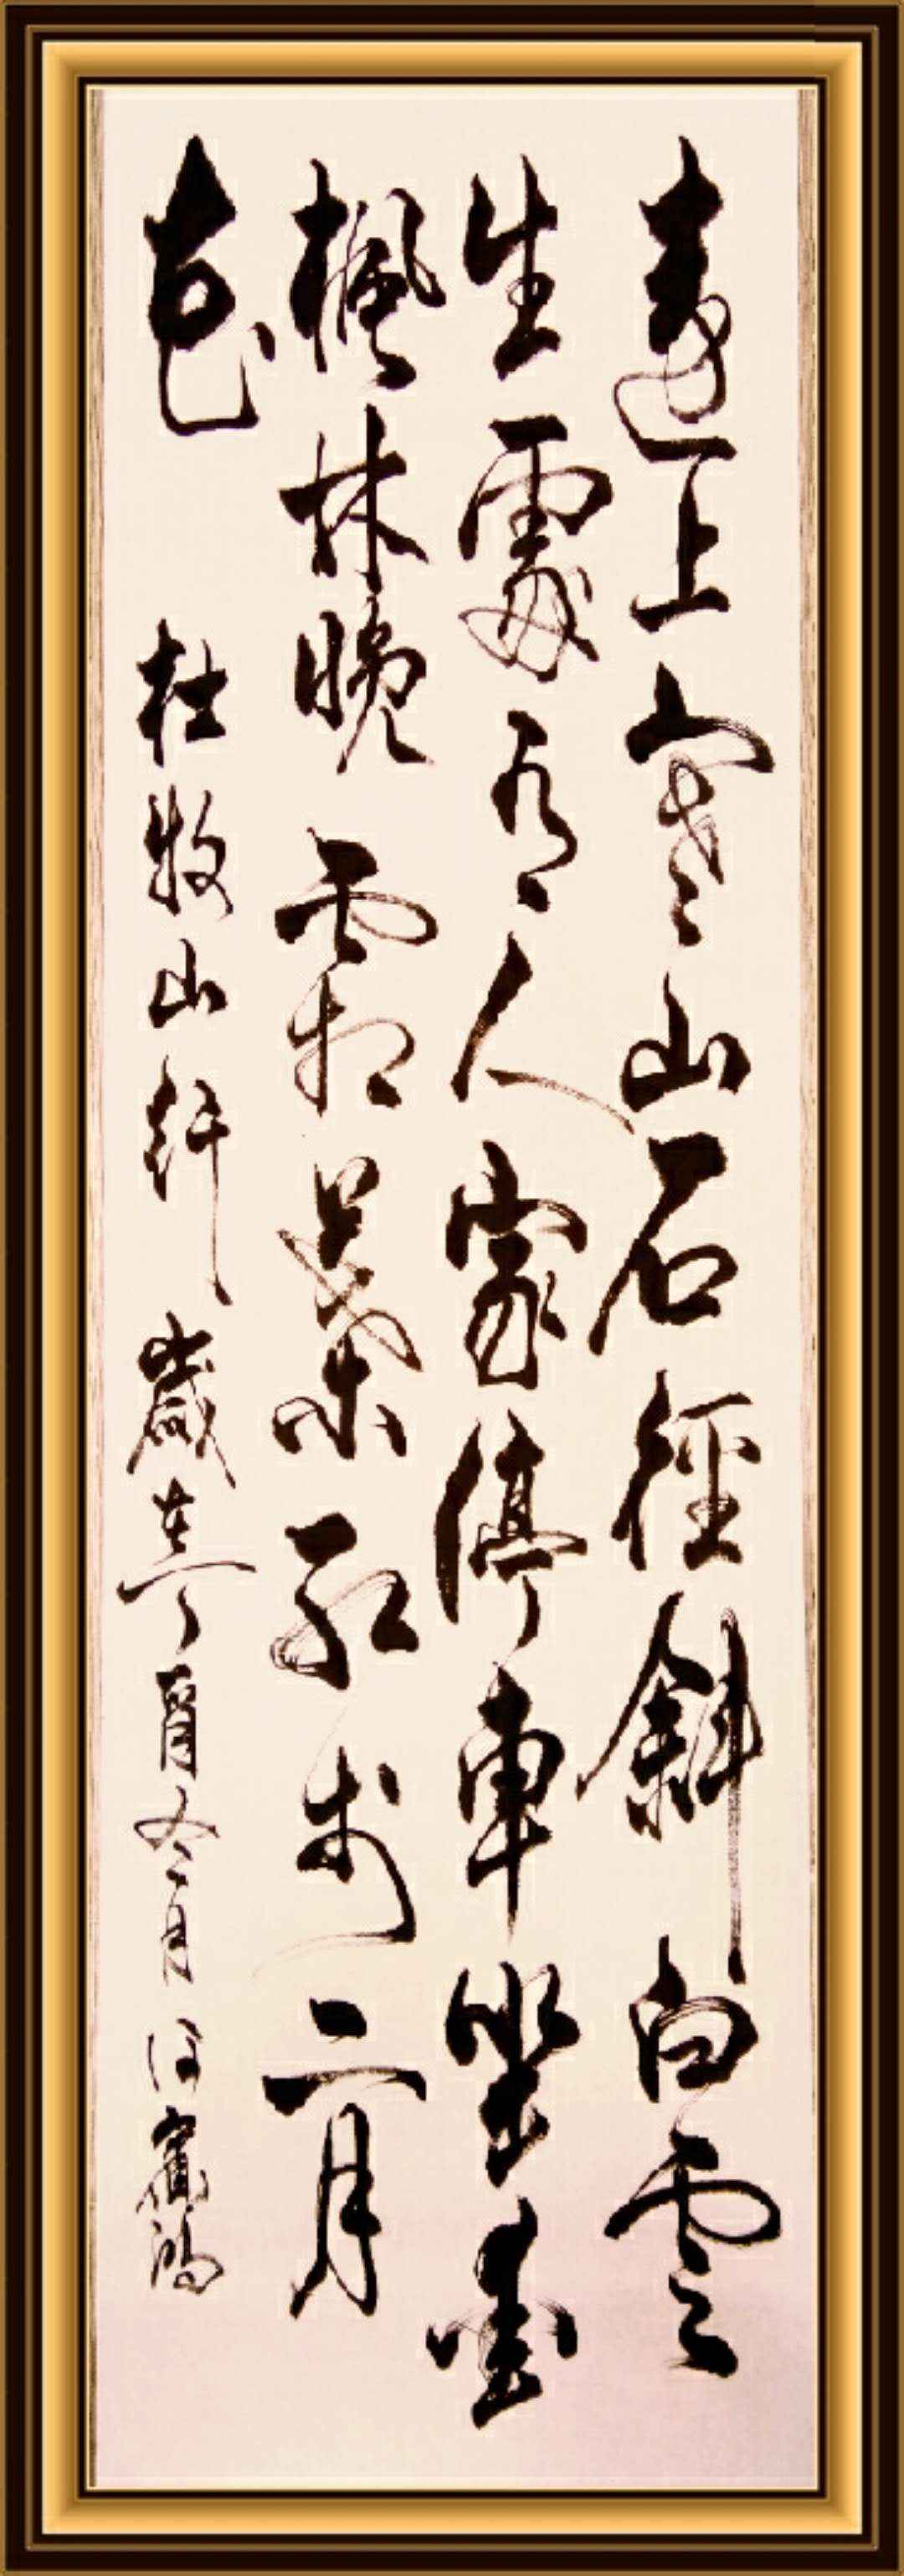 遠上寒山石徑斜白雲
生處有人家停車坐愛
楓林晚霜葉紅於二月
花 杜牧山行 歲在丁酉冬月